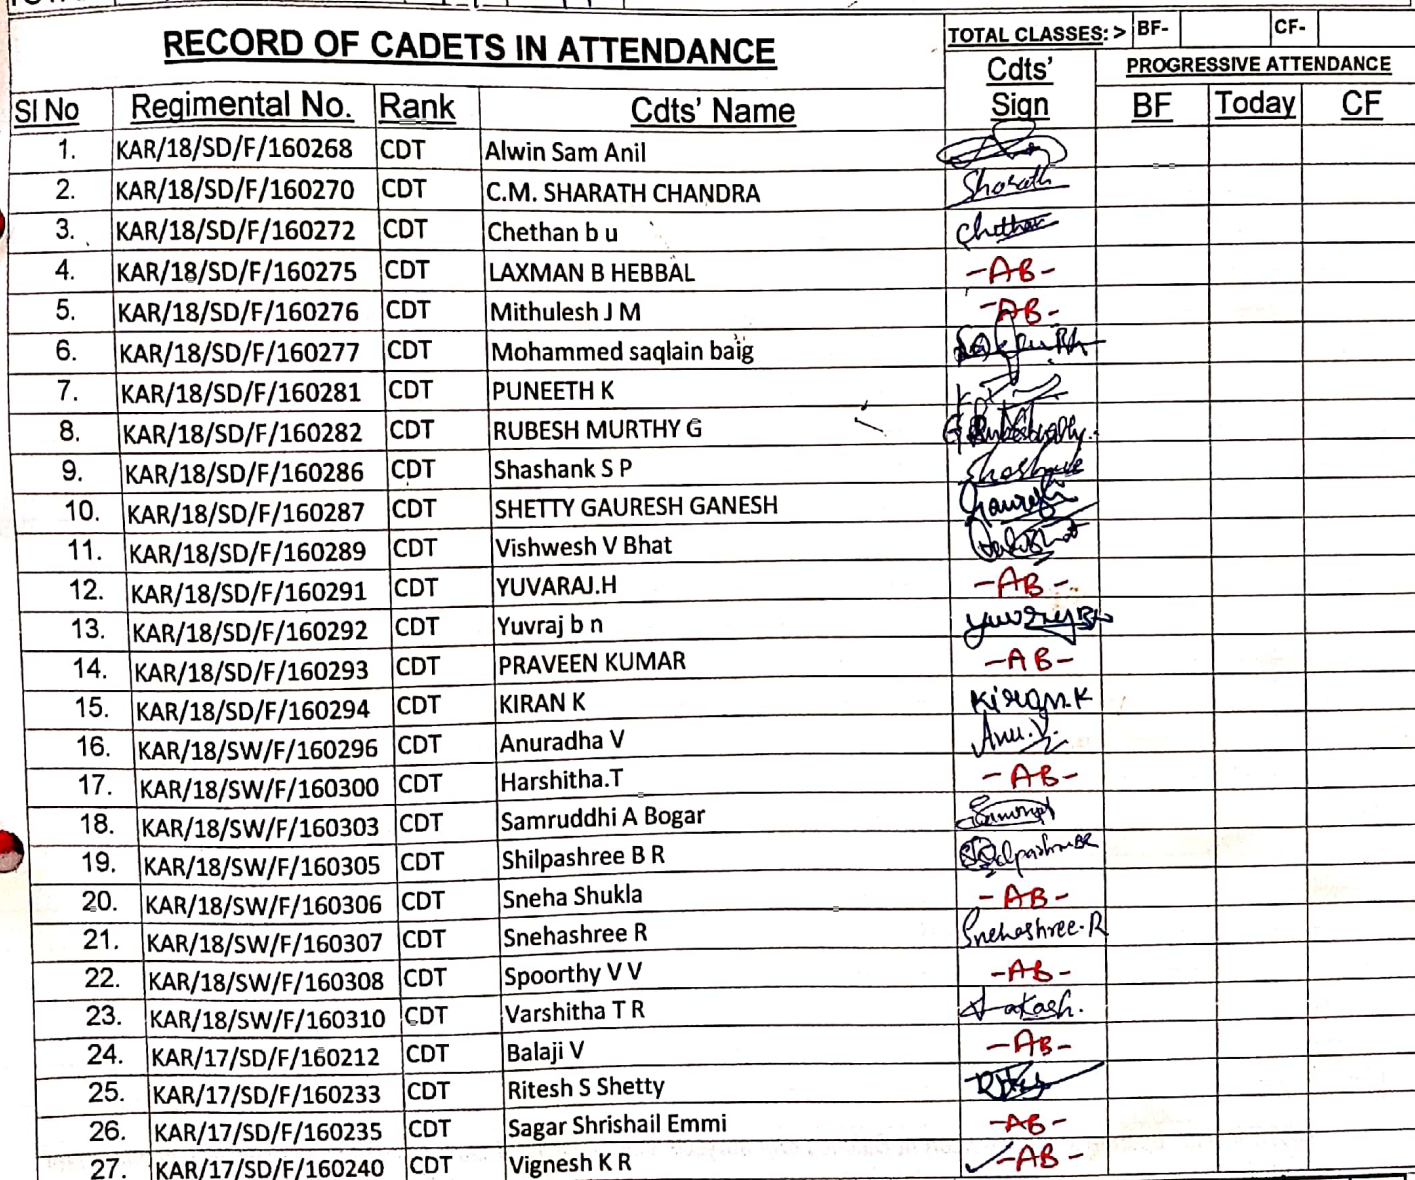 RECORD OF CADETS IN ATTENDANCE
TOTAL CLASSES: > BF- CF-
Cdts' Sign PROGRESSIVE ATTENDANCE
Sl No Regimental No. Rank Cdts' Name BF Today CF
1. KAR/18/SD/F/160268 CDT Alwin Sam Anil
2. KAR/18/SD/F/160270 CDT C.M. SHARATH CHANDRA Sharath
3. KAR/18/SD/F/160272 CDT Chethan b u Chethan
4. KAR/18/SD/F/160275 CDT LAXMAN B HEBBAL -AB-
5. KAR/18/SD/F/160276 CDT Mithulesh J M -AB-
6. KAR/18/SD/F/160277 CDT Mohammed saqlain baig
7. KAR/18/SD/F/160281 CDT PUNEETH K
8. KAR/18/SD/F/160282 CDT RUBESH MURTHY G
9. KAR/18/SD/F/160286 CDT Shashank S P Shashank
10. KAR/18/SD/F/160287 CDT SHETTY GAURESH GANESH Gauresh
11. KAR/18/SD/F/160289 CDT Vishwesh V Bhat
12. KAR/18/SD/F/160291 CDT YUVARAJ.H -AB-
13. KAR/18/SD/F/160292 CDT Yuvraj b n
14. KAR/18/SD/F/160293 CDT PRAVEEN KUMAR -AB-
15. KAR/18/SD/F/160294 CDT KIRAN K Kiran.K
16. KAR/18/SW/F/160296 CDT Anuradha V Anu.V.
17. KAR/18/SW/F/160300 CDT Harshitha.T -AB-
18. KAR/18/SW/F/160303 CDT Samruddhi A Bogar
19. KAR/18/SW/F/160305 CDT Shilpashree B R
20. KAR/18/SW/F/160306 CDT Sneha Shukla -AB-
21. KAR/18/SW/F/160307 CDT Snehashree R Snehashree.R
22. KAR/18/SW/F/160308 CDT Spoorthy V V -AB-
23. KAR/18/SW/F/160310 CDT Varshitha T R
24. KAR/17/SD/F/160212 CDT Balaji V -AB-
25. KAR/17/SD/F/160233 CDT Ritesh S Shetty
26. KAR/17/SD/F/160235 CDT Sagar Shrishail Emmi -AB-
27. KAR/17/SD/F/160240 CDT Vignesh K R -AB-